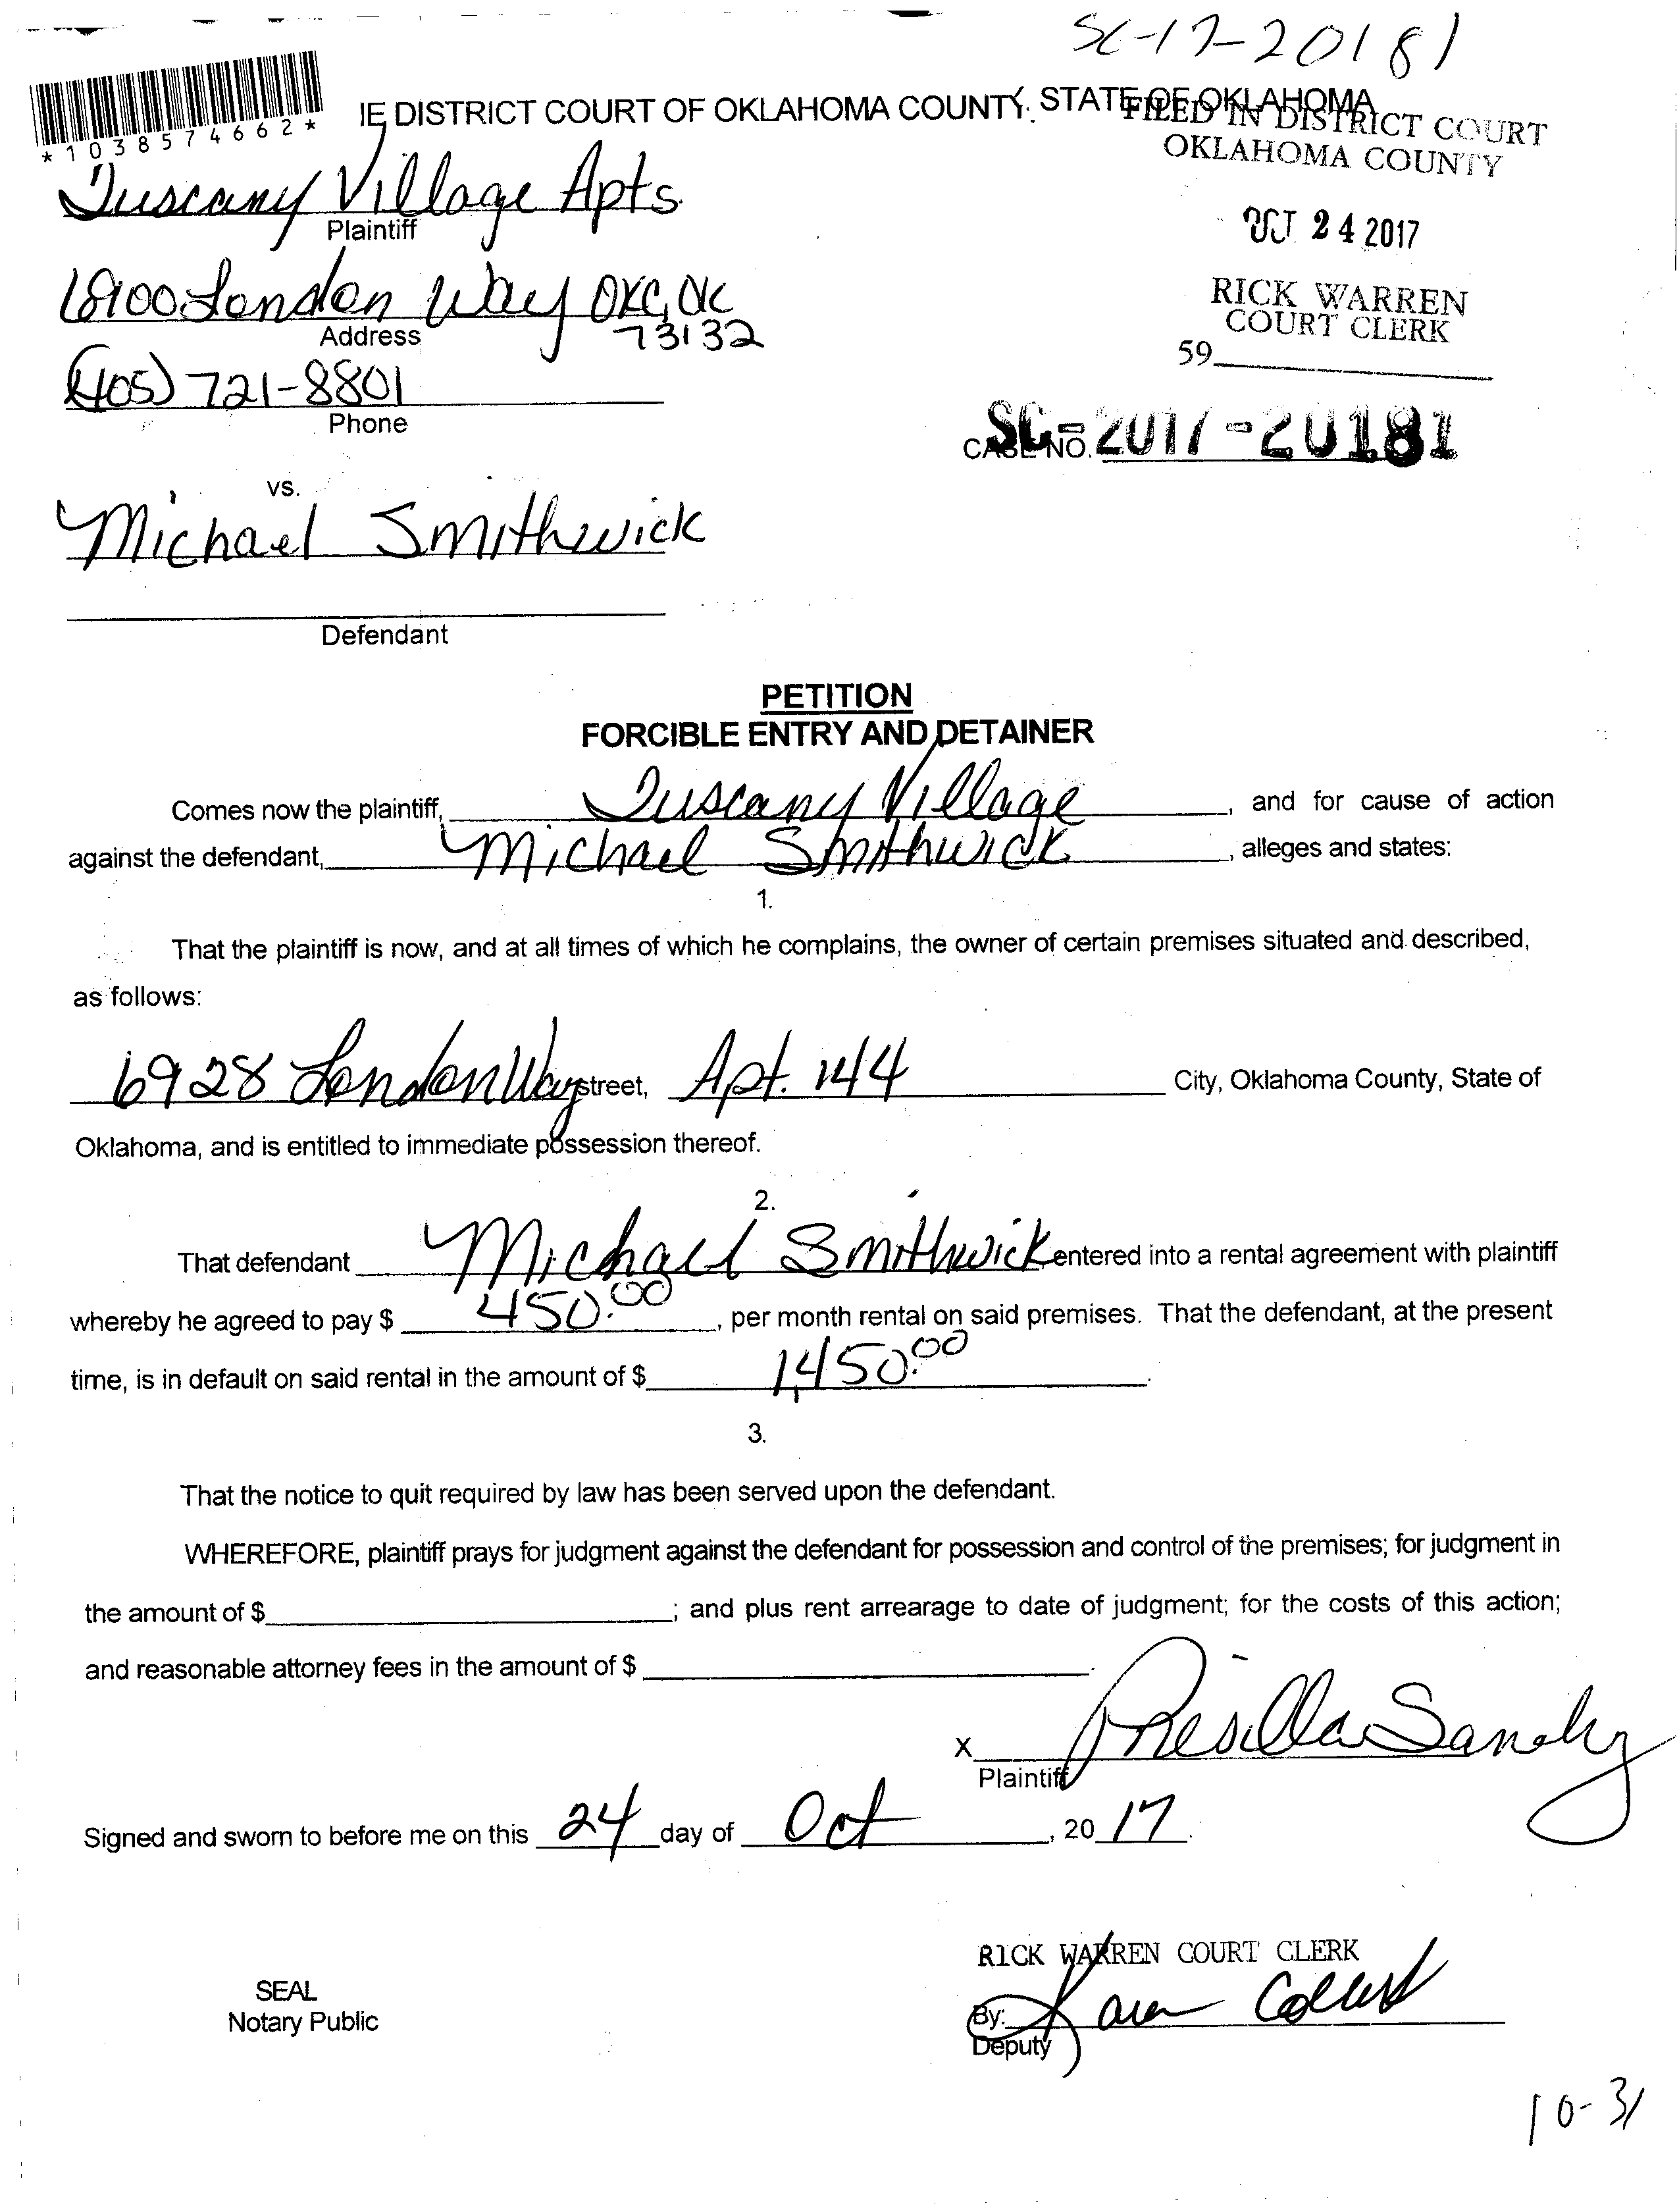 SC-17-20181
*1038574662*
IE DISTRICT COURT OF OKLAHOMA COUNTY, STATE OF OKLAHOMA
FILED IN DISTRICT COURT
OKLAHOMA COUNTY
Tuscany Village Apts.
Plaintiff
OCT 24 2017
London Way OKC, OK
73132
Address
RICK WARREN
COURT CLERK
59
(405) 721-8801
Phone
CASE NO. SC-2017-20181
vs.
Michael Smithwick
Defendant
PETITION
FORCIBLE ENTRY AND DETAINER
Comes now the plaintiff, Tuscany Village, and for cause of action
against the defendant, Michael Smithwick, alleges and states:
1.
That the plaintiff is now, and at all times of which he complains, the owner of certain premises situated and described,
as follows:
6928 London Way street, Apt. 144 City, Oklahoma County, State of
Oklahoma, and is entitled to immediate possession thereof.
2.
That defendant Michael Smithwick entered into a rental agreement with plaintiff
whereby he agreed to pay $ 450.00, per month rental on said premises. That the defendant, at the present
time, is in default on said rental in the amount of $ 1,450.00.
3.
That the notice to quit required by law has been served upon the defendant.
WHEREFORE, plaintiff prays for judgment against the defendant for possession and control of the premises; for judgment in
the amount of $ ; and plus rent arrearage to date of judgment; for the costs of this action;
and reasonable attorney fees in the amount of $ .
x
Plaintiff
Signed and sworn to before me on this 24 day of Oct, 20 17.
RICK WARREN COURT CLERK
SEAL
Notary Public
By: Karen
Deputy
10-31